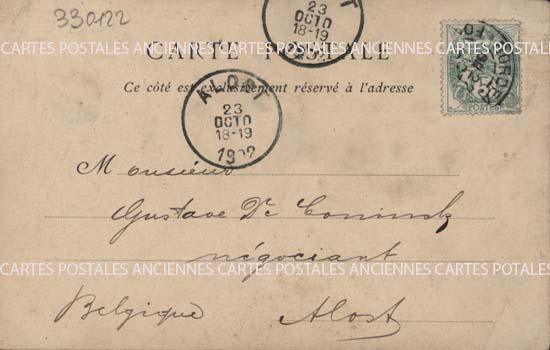 330122
CARTE POSTALE
Ce côté est exclusivement réservé à l'adresse
23
OCTO
18-19
ALOST
23
OCTO
18-19
1902
Monsieur
Gustave De Coninck
négociant
CARTES POSTALES ANCIENNES CARTES POSTALES ANCIENNES CARTES POSTALES
Belgique Alost
POSTES